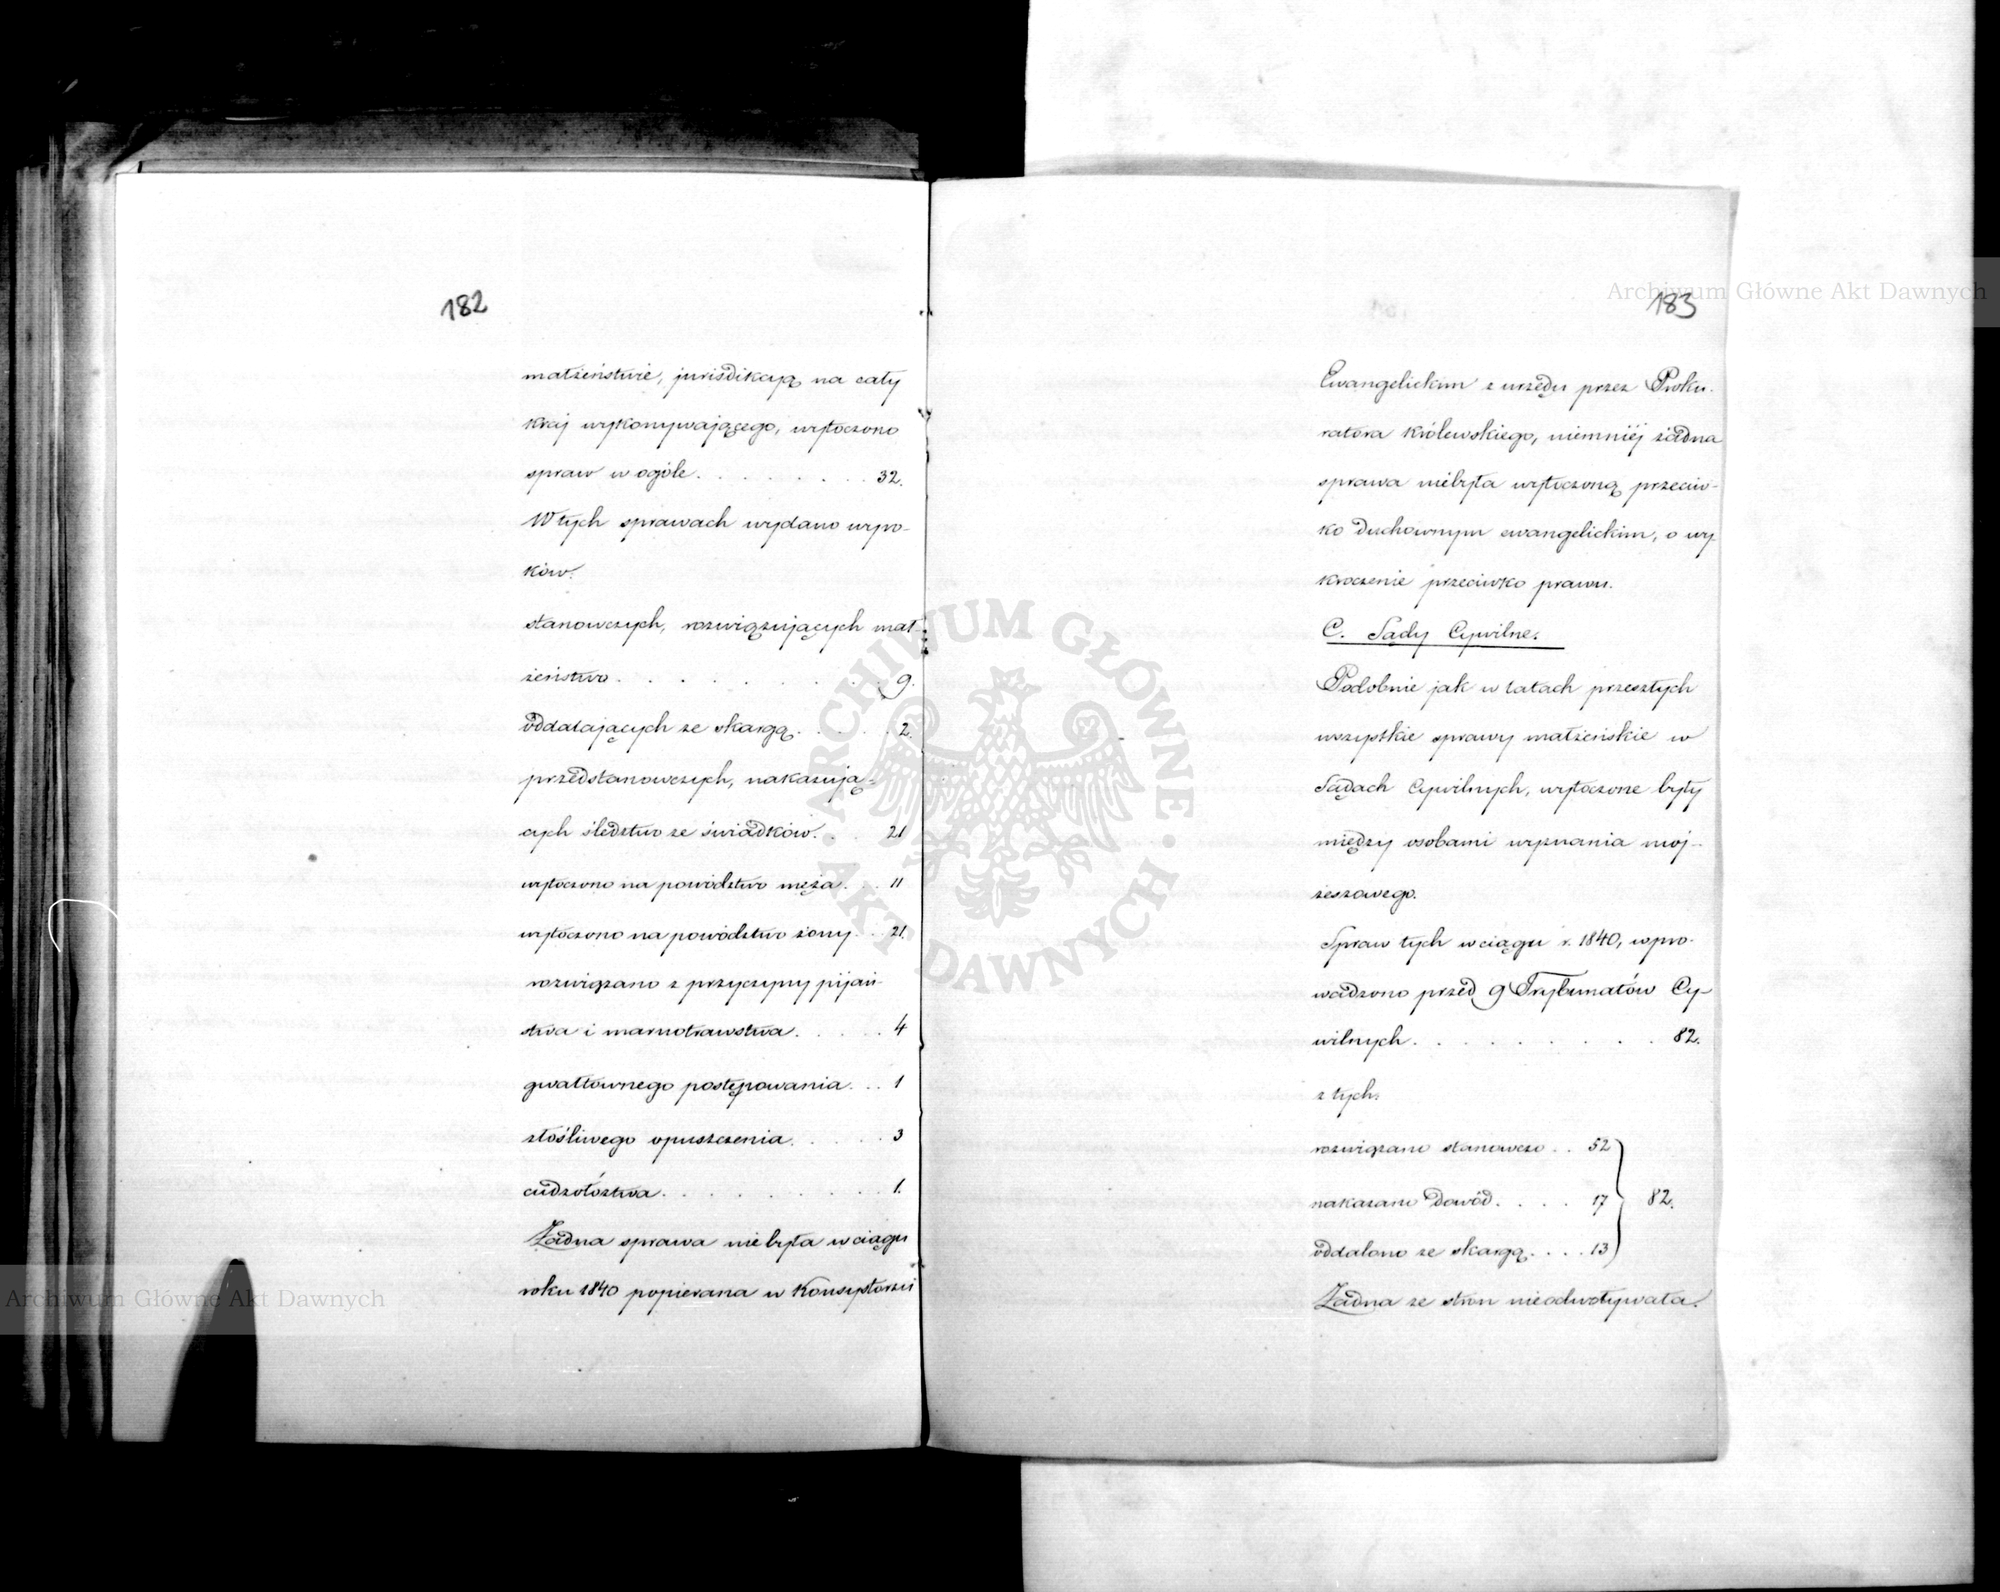 182
małżeństwie, jurisdikcyą na cały
kraj wykonywającego, wytoczono
spraw w ogóle . . . . . . . . 32.
W tych sprawach wydano wyro-
ków.
stanowczych, rozwiązujących mał-
żeństwo . . . . . . . . 9.
oddalających ze skargą . . . . . 2.
przedstanowczych, nakazują-
cych śledztwo ze świadków. . . 21
wytoczono na powództwo męża . . . 11
wytoczono na powództwo żony . . 21.
rozwiązano z przyczyny pijań-
stwa i marnotrawstwa . . . . . 4
gwałtownego postępowania . . . 1
złośliwego opuszczenia . . . . . 3
cudzołóztwa . . . . . . . . . 1.
Żadna sprawa nie była w ciągu
roku 1840 popierana w Konsystorzu
183
Ewangelickim z urzędu przez Proku-
ratora Królewskiego, niemniéj żadna
sprawa niebyła wytoczoną przeciw-
ko duchownym ewangelickim, o wy-
kroczenie przeciwko prawu.
C. Sądy Cywilne.
Podobnie jak w latach przeszłych
wszystkie sprawy małżeńskie w
Sądach Cywilnych, wytoczone były
między osobami wyznania moj-
żeszowego.
Spraw tych w ciągu r. 1840, wpro-
wadzono przed 9 Trybunałów Cy-
wilnych . . . . . . . . . 82.
z tych.
rozwiązano stanowczo . . 52
nakazano dowód . . . . 17 82.
oddalono ze skargą . . . . 13
Żadna ze stron nieodwoływała.
Archiwum Główne Akt Dawnych
Archiwum Główne Akt Dawnych
ARCHIWUM GŁÓWNE · AKT DAWNYCH ·